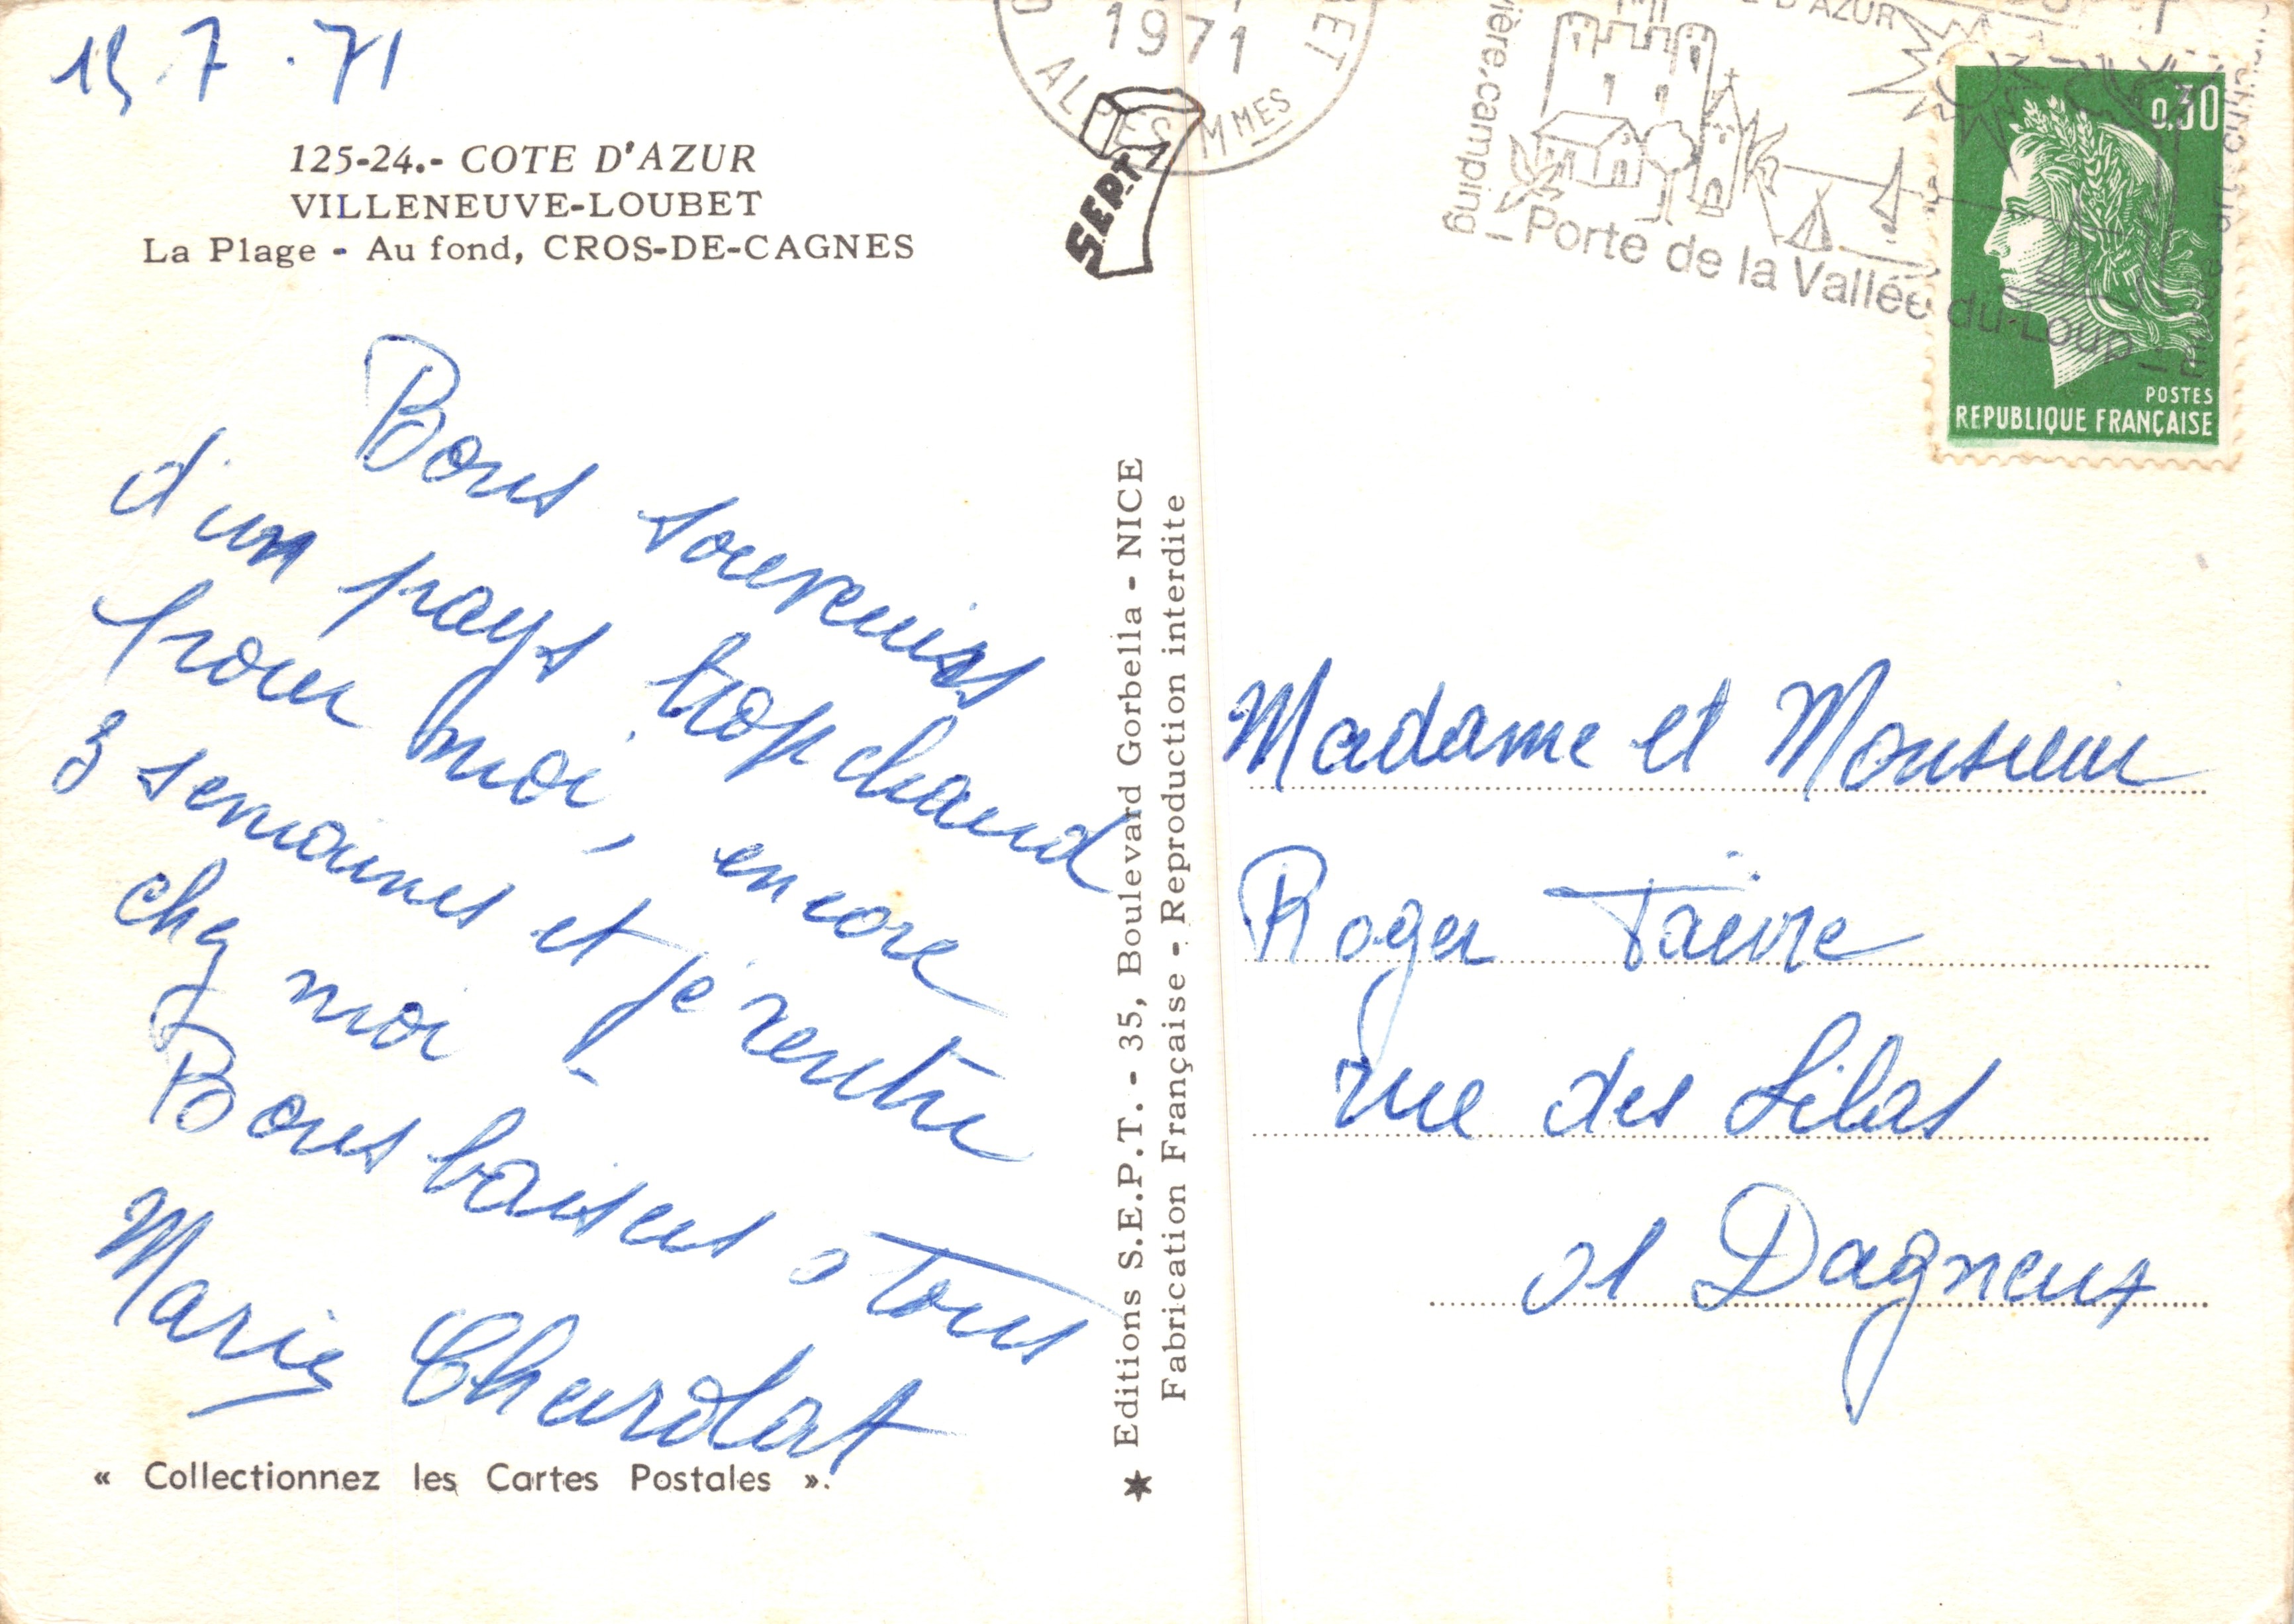 15.7.71
125-24.- COTE D'AZUR
VILLENEUVE-LOUBET
La Plage - Au fond, CROS-DE-CAGNES
Bons souvenirs
d'un pays trop chaud
pour moi, encore
3 semaines et je rentre
chez moi
Bons baisers a tous
Marie Charolat
« Collectionnez les Cartes Postales ».
★ Editions S.E.P.T. - 35, Boulevard Gorbella - NICE
Fabrication Française - Reproduction interdite
1971
ALPES MMES
S.E.P.T.
D'AZUR
camping
Porte de la Vallée du Loup
0,30
POSTES
REPUBLIQUE FRANÇAISE
Madame et Monsieur
Roger Faivre
rue des Lilas
01 Dagneux